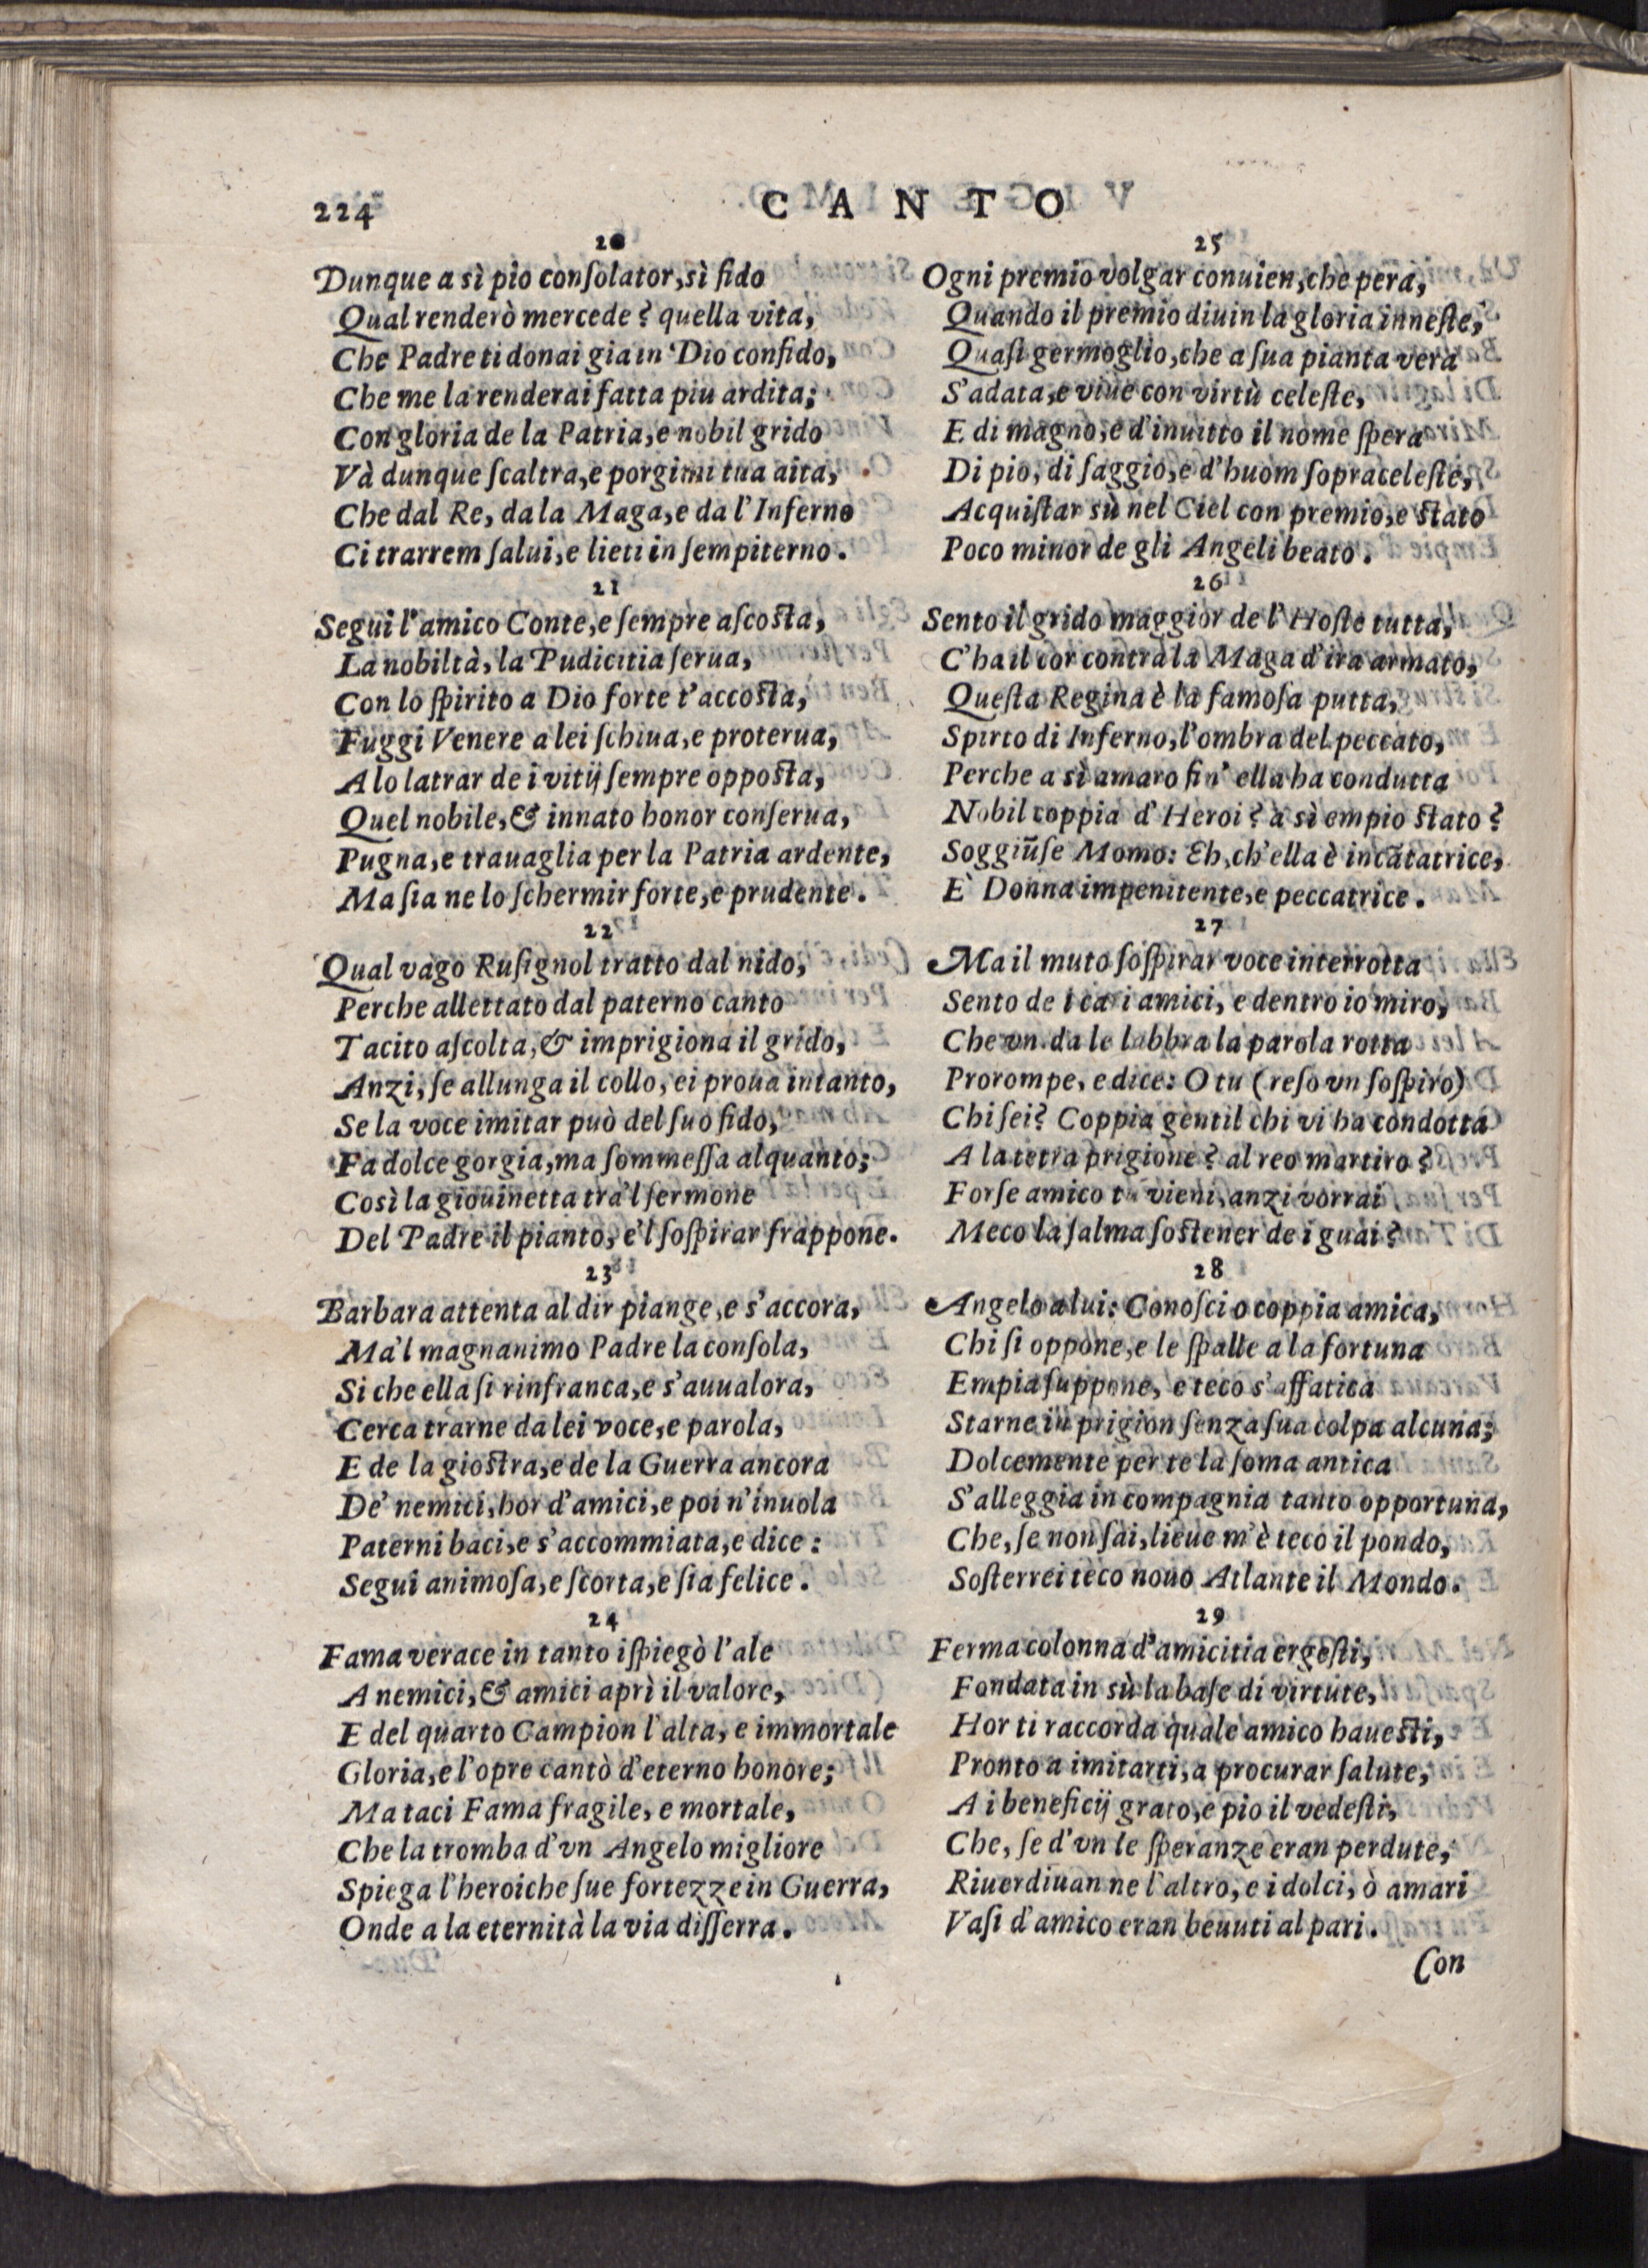 224
CANTO
20
Dunque a sì pio conſolator, sì fido
Qual renderò mercede? quella vita,
Che Padre ti donai gia in Dio confido,
Che me la renderai fatta piu ardita;
Con gloria de la Patria, e nobil grido
Và dunque ſcaltra, e porgimi tua aita,
Che dal Re, da la Maga, e da l'Inferno
Ci trarrem ſalui, e lieti in ſempiterno.
21
Segui l'amico Conte, e ſempre aſcoſta,
La nobiltà, la Pudicitia ſerua,
Con lo ſpirito a Dio forte t'accoſta,
Fuggi Venere a lei ſchiua, e proterua,
A lo latrar de i vitij ſempre oppoſta,
Quel nobile, & innato honor conſerua,
Pugna, e trauaglia per la Patria ardente,
Ma ſia ne lo ſchermir forte, e prudente.
22
Qual vago Ruſignol tratto dal nido,
Perche allettato dal paterno canto
Tacito aſcolta, & imprigiona il grido,
Anzi, ſe allunga il collo, ei proua intanto,
Se la voce imitar può del ſuo fido,
Fa dolce gorgia, ma ſommeſſa alquanto;
Così la giouinetta tra'l ſermone
Del Padre il pianto, e'l ſoſpirar frappone.
23
Barbara attenta al dir piange, e s'accora,
Ma'l magnanimo Padre la conſola,
Si che ella ſi rinfranca, e s'auualora,
Cerca trarne da lei voce, e parola,
E de la gioſtra, e de la Guerra ancora
De' nemici, hor d'amici, e poi n'inuola
Paterni baci, e s'accommiata, e dice:
Segui animoſa, e ſcorta, e ſia felice.
24
Fama verace in tanto iſpiegò l'ale
A nemici, & amici aprì il valore,
E del quarto Campion l'alta, e immortale
Gloria, e l'opre cantò d'eterno honore;
Ma taci Fama fragile, e mortale,
Che la tromba d'vn Angelo migliore
Spiega l'heroiche ſue fortezze in Guerra,
Onde a la eternità la via diſſerra.
25
Ogni premio volgar conuien, che pera,
Quando il premio diuin la gloria inneſte,
Quaſi germoglio, che a ſua pianta vera
S'adata, e viue con virtù celeſte,
E di magno, e d'inuitto il nome ſpera
Di pio, di ſaggio, e d'huom ſopraceleſte,
Acquiſtar sù nel Ciel con premio, e ſtato
Poco minor de gli Angeli beato.
26
Sento il grido maggior de l'Hoſte tutta,
C'ha il cor contra la Maga d'ira armato,
Queſta Regina è la famoſa putta,
Spirto di Inferno, l'ombra del peccato,
Perche a sì amaro fin' ella ha condutta
Nobil coppia d'Heroi? a sì empio ſtato?
Soggiūſe Momo: Eh, ch'ella è incātatrice,
È Donna impenitente, e peccatrice.
27
Ma il muto ſoſpirar voce interrotta
Sento de i cari amici, e dentro io miro,
Che vn da le labbra la parola rotta
Prorompe, e dice: O tu (reſo vn ſoſpiro)
Chi ſei? Coppia gentil chi vi ha condotta
A la tetra prigione? al reo martiro?
Forſe amico tu vieni, anzi vorrai
Meco la ſalma ſoſtener de i guai?
28
Angelo a lui: Conoſci o coppia amica,
Chi ſi oppone, e le ſpalle a la fortuna
Empia ſuppone, e teco s'affatica
Starne in prigion ſenza ſua colpa alcuna;
Dolcemente per te la ſoma antica
S'alleggia in compagnia tanto opportuna,
Che, ſe non ſai, lieue m'è teco il pondo,
Soſterrei teco nouo Atlante il Mondo.
29
Ferma colonna d'amicitia ergeſti,
Fondata in sù la baſe di virtute,
Hor ti raccorda quale amico haueſti,
Pronto a imitarti, a procurar ſalute,
A i beneficij grato, e pio il vedeſti,
Che, ſe d'vn le ſperanze eran perdute,
Riuerdiuan ne l'altro, e i dolci, ò amari
Vaſi d'amico eran beuuti al pari.
Con